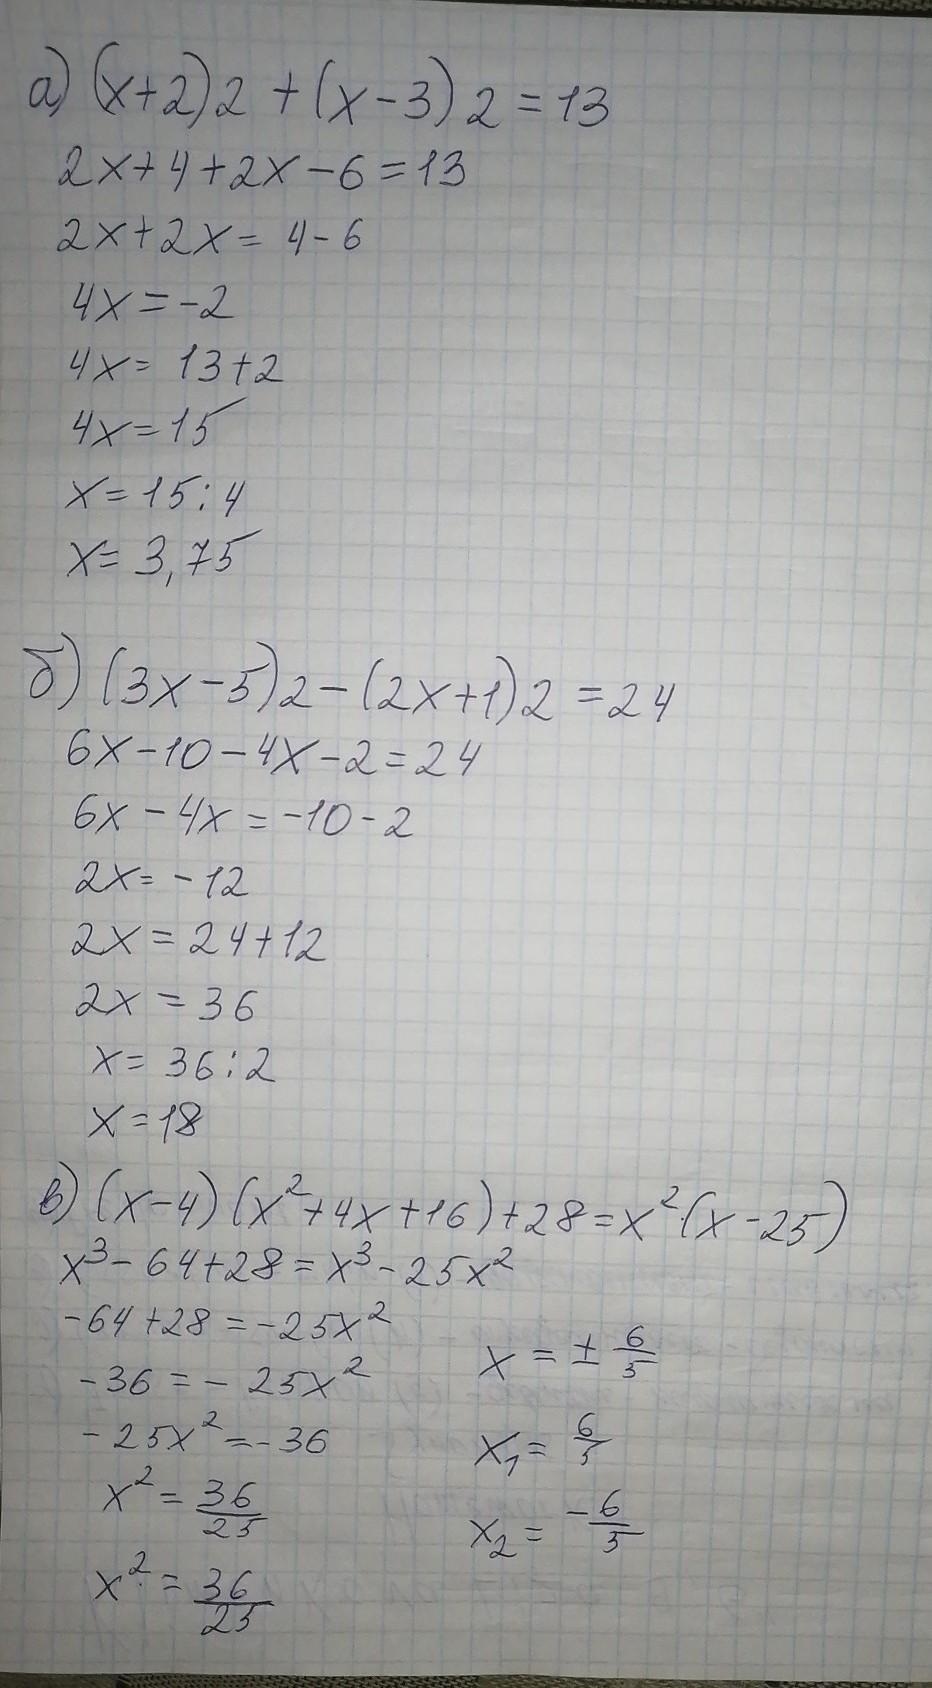 а) (x+2)2+(x-3)2=13
2x+4+2x-6=13
2x+2x=4-6
4x=-2
4x=13+2
4x=15
x=15:4
x=3,75
б) (3x-5)2-(2x+1)2=24
6x-10-4x-2=24
6x-4x=-10-2
2x=-12
2x=24+12
2x=36
x=36:2
x=18
в) (x-4)(x²+4x+16)+28=x²·(x-25)
x³-64+28=x³-25x²
-64+28=-25x²
-36=-25x²
-25x²=-36
x²=36/25
x²=36/25
x=±6/5
x₁=6/5
x₂=-6/5